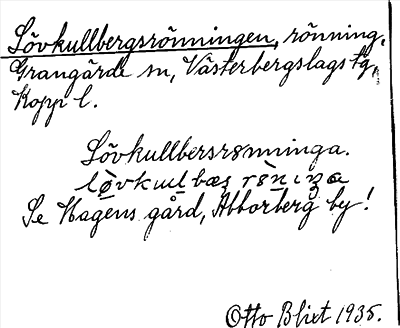 Lövkullbergsrönningen, rönning,
Grangärde sn, Västerbergslags tg,
Kopp l.
Lövkullbersrönninga.
Se Hagens gård, Abborberg by!
Otto Blixt 1935.